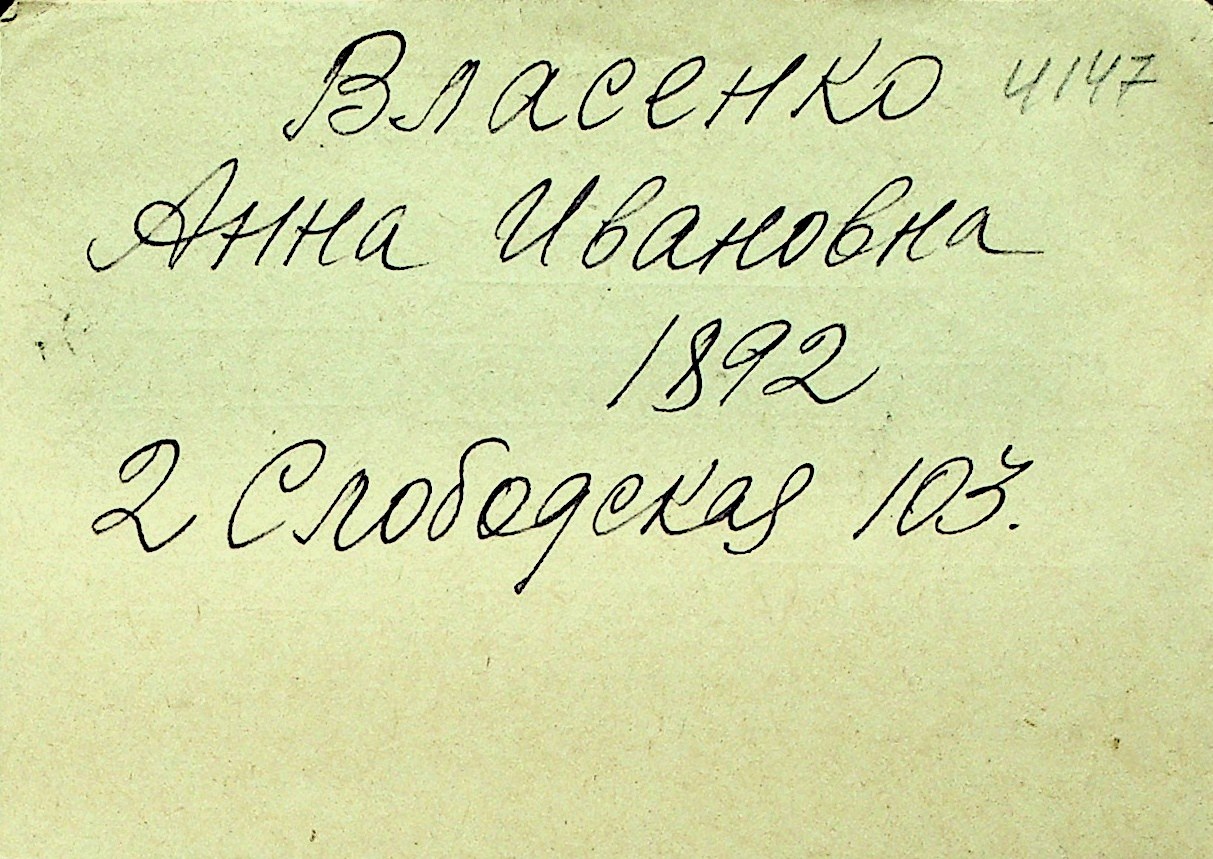 Власенко 4147
Анна Ивановна
1892
2 Слободская 103.